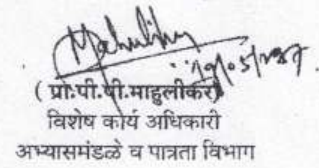 ( प्रो.पी.पी.माहुलीकर)
विशेष कार्य अधिकारी
अभ्यासमंडळे व पात्रता विभाग